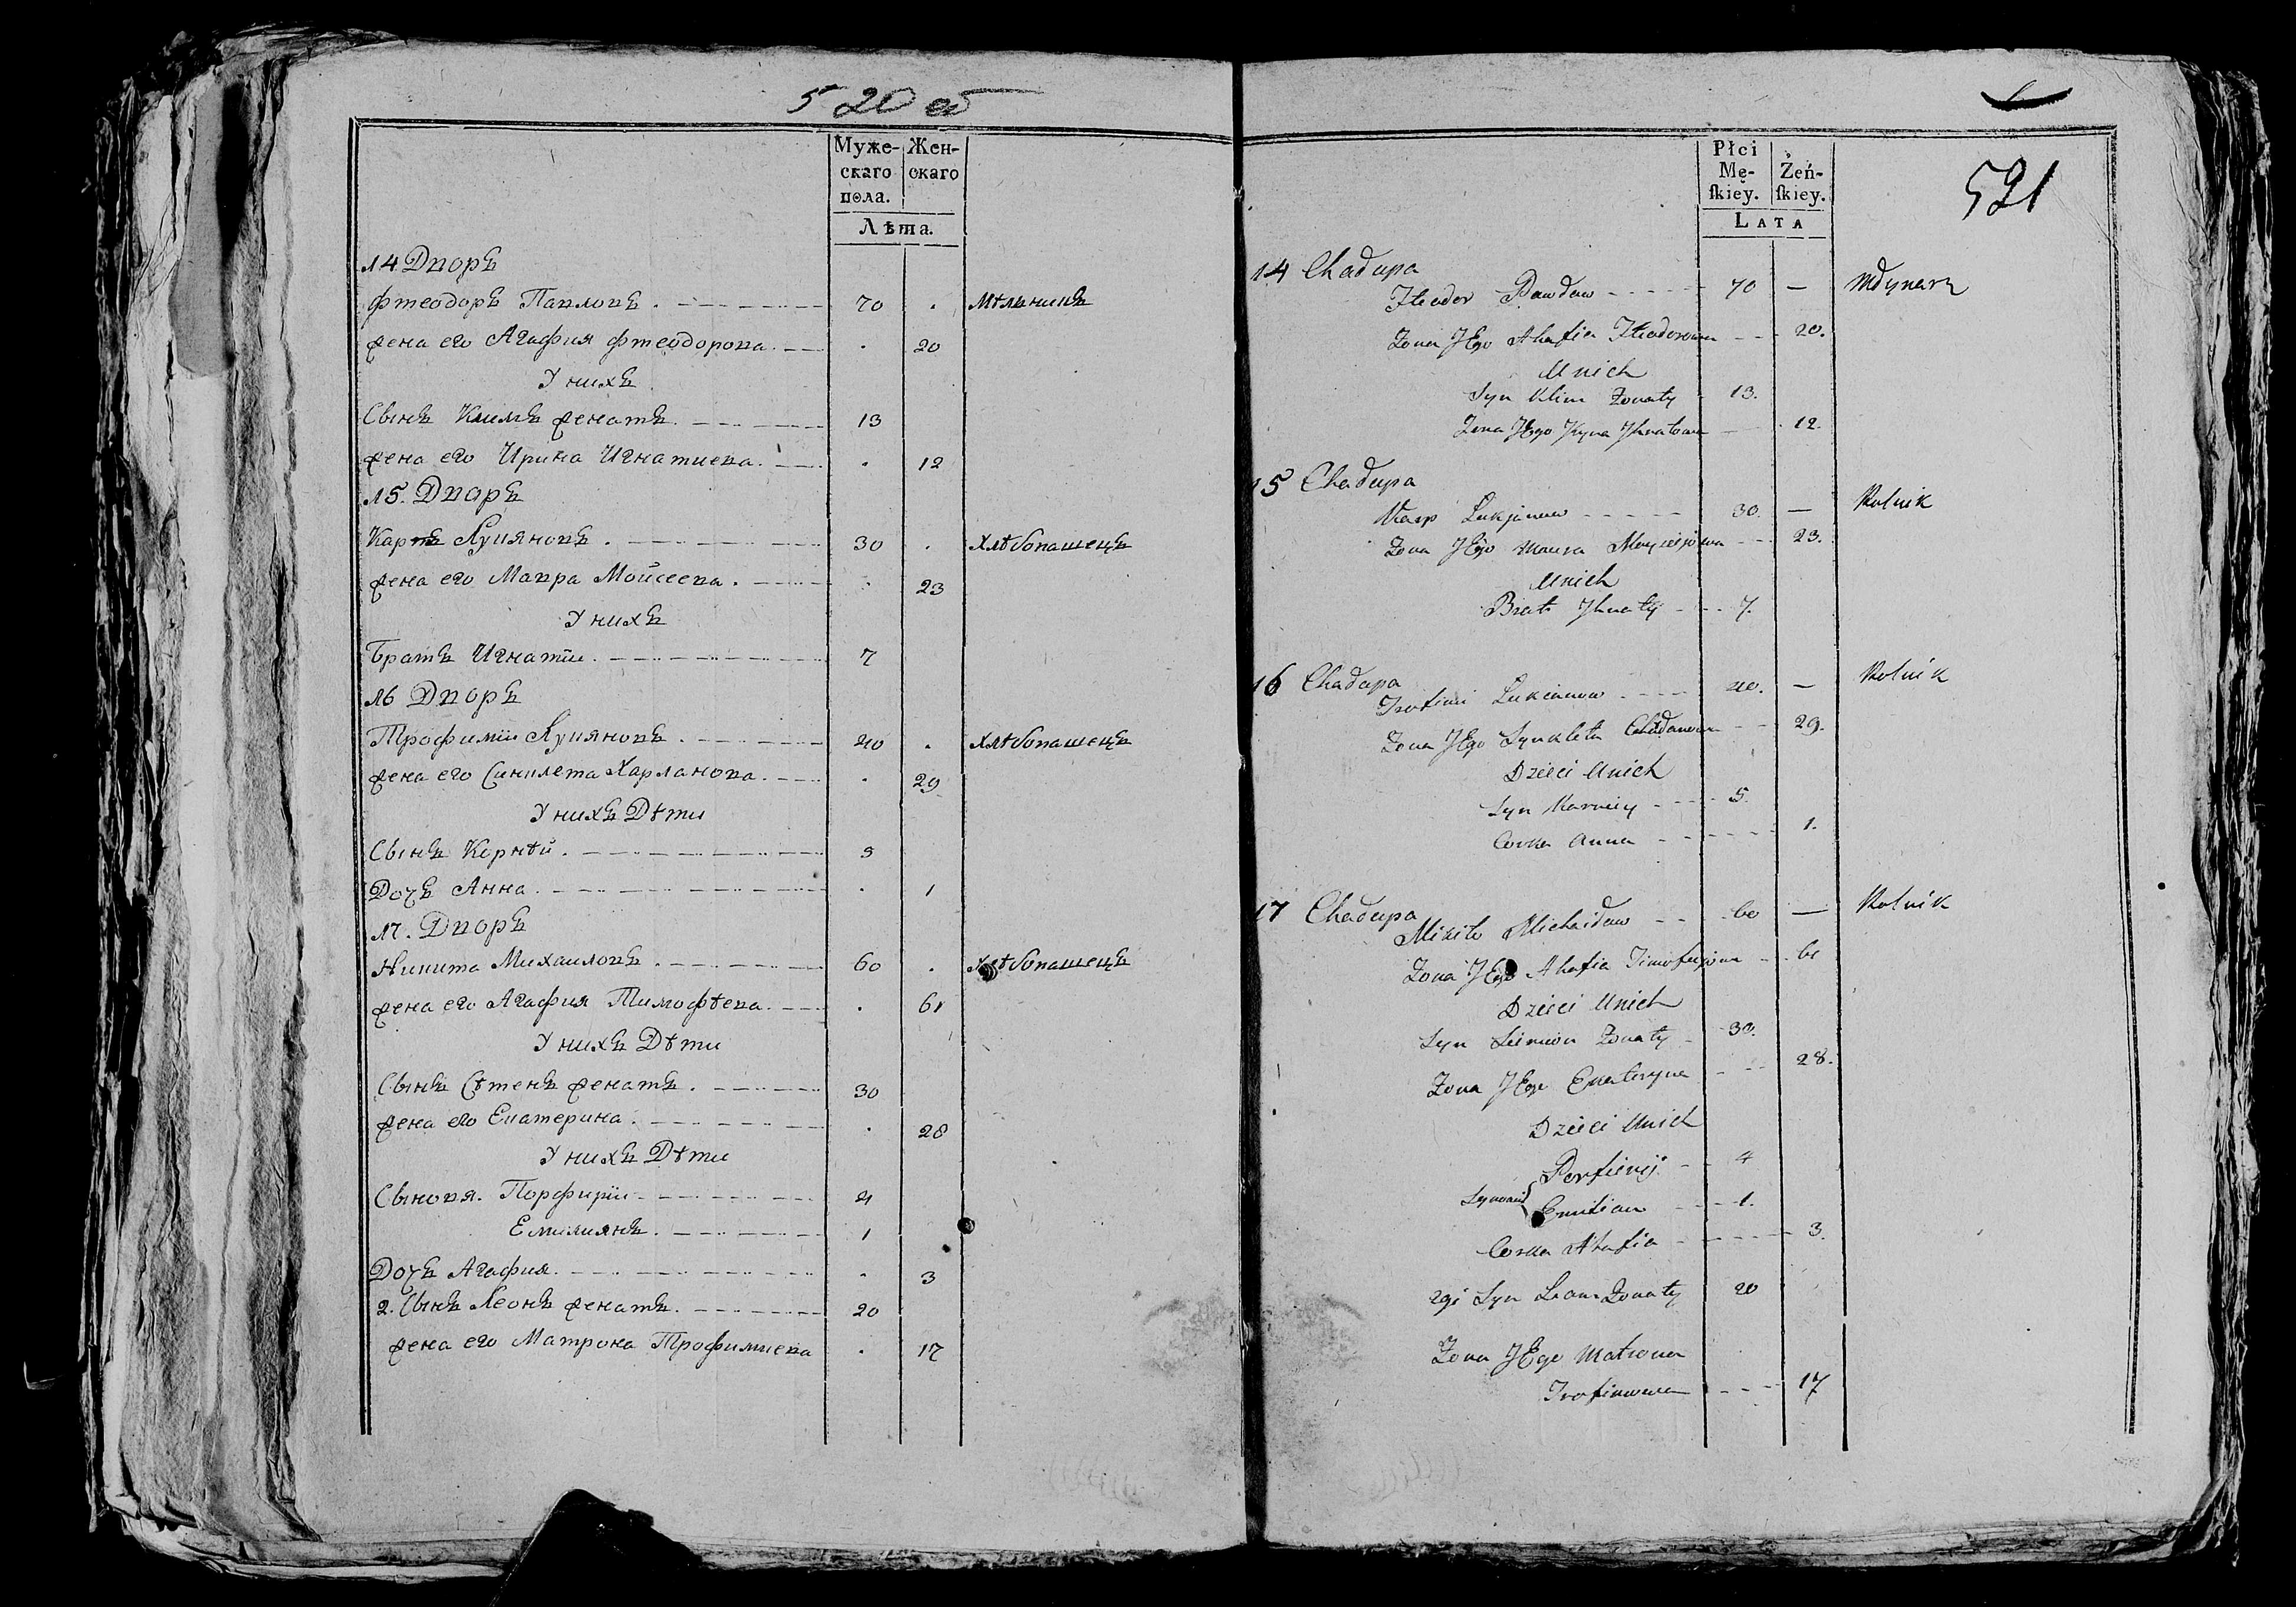 520 об
Муже-
скаго
пола.
Жен-
скаго
Лѣта.
14 Дворъ
Фтеодоръ Павловъ . 70 . Мѣльникъ
жена его Агафия Фтеодорова . . 20
У нихъ
Сынъ Климъ женатъ . 13
жена его Ирина Игнатиева . . 12
15. Дворъ
Карпъ Лукяновъ . 30 . Хлѣбопашецъ
жена его Мавра Мойсеева . . 23
У нихъ
Братъ Игнатіи . 7
16 Дворъ
Трофимїи Лукяновъ . 40 . Хлѣбопашецъ
жена его Синклета Харланова . . 29
У нихъ Дѣти
Сынъ Корнѣй . 5
Дочъ Анна . . 1
17. Дворъ
Никита Михаиловъ . 60 . Хлѣбопашецъ
жена его Агафия Тимофѣева . . 61
У нихъ Дѣти
Сынъ Сѣменъ женатъ . 30
жена его Екатерина . . 28
У нихъ Дѣти
Сыновя. Порфирїи 4
Емилиянъ . 1
Дочъ Агафия . . 3
2. Сынъ Леонъ женатъ . 20
жена его Матрона Трофимиева . 17
521
Płci
Mę-
ſkiey.
Żeń-
ſkiey.
LATA
14 Chadupa
Fteodor Pawdow 70 — Mdynarz
Zona JEgo Ahafia Fteodorowa 20.
Unich
Syn Klim Zonaty 13.
Zona JEgo Jryna Jhnatowa 12.
15 Chadupa
Karp Lukjanow 30. — Rolnik
Zona JEgo Maura Moysiejowa 23.
Unich
Brat Jhnatÿ 7.
16 Chadupa
Trofimi Lukianow 40. — Rolnik
Zona JEgo Synkleta 29.
Dzieci Unich
Syn Karniey 5.
Corka Anna 1.
17 Chadupa
Mikita Michaidow 60 — Rolnik
Zona JEgo Ahafia Timofiejowa 61
Dzieci Unich
Syn Siemion Zonaty 30.
Zona JEgo Ekateryna 28.
Dzieci Unich
Porfirij 4
Synowie Emilian 1.
Corka Ahafia 3.
2gi Syn Leon Zonaty 20
Zona JEgo Matrona
Trofimowa 17